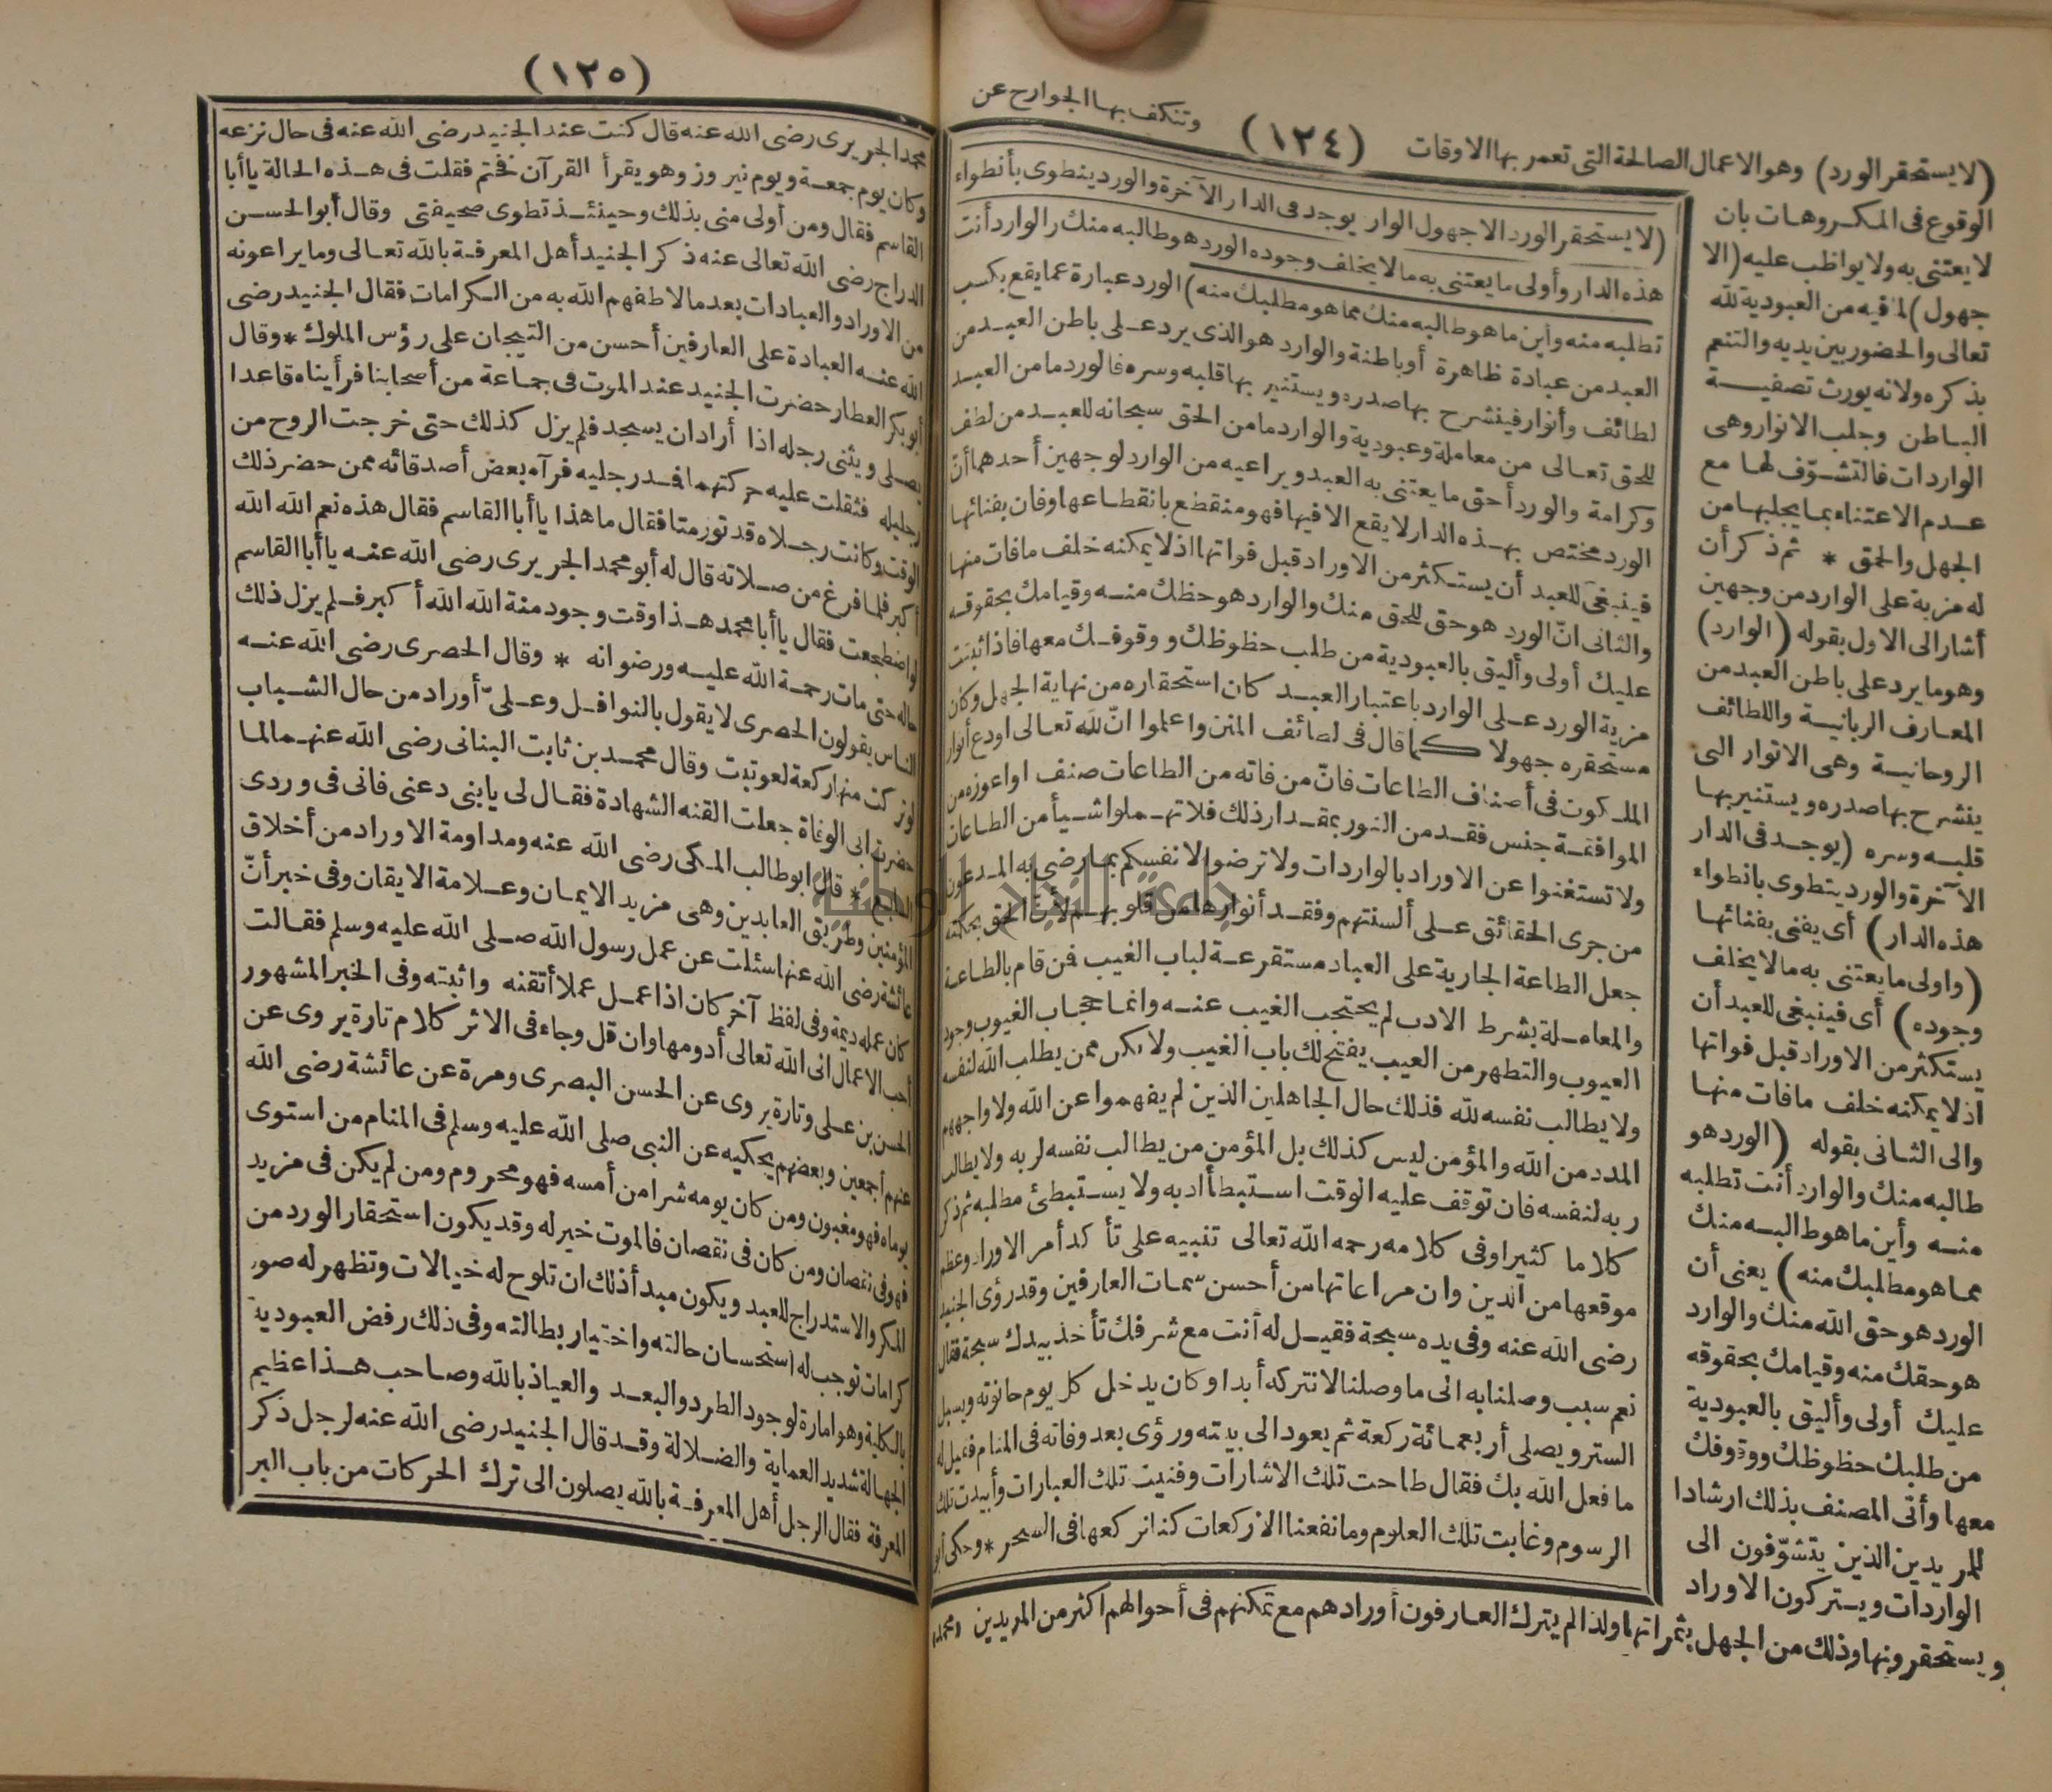 (١٢٤)
(لا يستحقر الورد) وهو الاعمال الصالحة التى تعمر بها الاوقات وتنكف بها الجوارح عن
الوقوع فى المكروهات بان
لا يعتنى به ولا يواظب عليه (الا
جهول) لما فيه من العبودية لله
تعالى والحضور بين يديه والتنعم
بذكره ولانه يورث تصفية
الباطن وجلب الانوار وهى
الواردات فالتشوّف لها مع
عدم الاعتناء بما يجلبها من
الجهل والحمق * ثم ذكر أن
له مزية على الوارد من وجهين
أشار الى الاول بقوله (الوارد)
وهو ما يرد على باطن العبد من
المعارف الربانية واللطائف
الروحانية وهى الانوار التى
ينشرح بها صدره ويستنير بها
قلبه وسره (يوجد فى الدار
الآخرة والورد ينطوى بانطواء
هذه الدار) أى يفنى بفنائها
(واولى ما يعتنى به ما لا يخلف
وجوده) أى فينبغى للعبد أن
يستكثر من الاوراد قبل فواتها
اذ لا يمكنه خلف ما فات منها
والى الثانى بقوله (الورد هو
طالبه منك والوارد أنت تطلبه
منه وأين ما هو طالبه منك
مما هو مطلبك منه) يعنى أن
الورد هو حق الله منك والوارد
هو حقك منه وقيامك بحقوقه
عليك أولى وأليق بالعبودية
من طلبك حظوظك ووقوفك
معها وأتى المصنف بذلك ارشادا
للمريدين الذين يتشوّفون الى
الواردات ويتركون الاوراد
ويستحقرونها وذلك من الجهل بثمراتها ولذا لم يترك العارفون أورادهم مع تمكنهم فى أحوالهم اكثر من المريدين
(لا يستحقر الورد الا جهول الوارد يوجد فى الدار الآخرة والورد ينطوى بأنطواء
هذه الدار وأولى ما يعتنى به ما لا يخلف وجوده الورد هو طالبه منك والوارد أنت
تطلبه منه وأين ما هو طالبه منك مما هو مطلبك منه) الورد عبارة عما يقع بكسب
العبد من عبادة ظاهرة أو باطنة والوارد هو الذى يرد على باطن العبد من
لطائف وأنوار فينشرح بها صدره ويستنير بها قلبه وسره فالورد ما من العبد
للحق تعالى من معاملة وعبودية والوارد ما من الحق سبحانه للعبد من لطف
وكرامة والورد أحق ما يعتنى به العبد ويراعيه من الوارد لوجهين أحدهما أن
الورد مختص بهذه الدار لا يقع الا فيها فهو منقطع بانقطاعها وفان بفنائها
فينبغى للعبد أن يستكثر من الاوراد قبل فواتها اذ لا يمكنه خلف ما فات منها
والثانى انّ الورد هو حق للحق منك والوارد هو حظك منه وقيامك بحقوقه
عليك أولى وأليق بالعبودية من طلب حظوظك ووقوفك معها فاذا ثبتت
مزية الورد على الوارد باعتبار العبد كان استحقاره من نهاية الجهل وكان
مستحقره جهولا كما قال فى لطائف المنن واعلموا انّ لله تعالى اودع أنوار
الملكوت فى أصناف الطاعات فانّ من فاته من الطاعات صنف او اعوزه من
الموافقة جنس فقد من النور بمقدار ذلك فلا تهملوا شيأ من الطاعات
ولا تستغنوا عن الاوراد بالواردات ولا ترضوا لانفسكم بما رضى به المدعون
من جرى الحقائق على ألسنتهم وفقد أنوارها من قلوبهم لأنّ الحق بحكمته
جعل الطاعة الجارية على العباد مستقرعة لباب الغيب فمن قام بالطاعة
والمعاملة بشرط الادب لم يحتجب الغيب عنه وانما حجاب الغيوب وجود
العيوب والتطهر من العيب يفتح لك باب الغيب ولا تكن ممن يطلب الله لنفسه
ولا يطالب نفسه لله فذلك حال الجاهلين الذين لم يفهموا عن الله ولا واجههم
المدد من الله والمؤمن ليس كذلك بل المؤمن من يطالب نفسه لربه ولا يطالب
ربه لنفسه فان توقف عليه الوقت استبطأ أدبه ولا يستبطئ مطلبه ثم ذكر
كلاما كثيرا وفى كلامه رحمه الله تعالى تنبيه على تأكد أمر الاوراد وعظم
موقعها من الدين وان مراعاتها من أحسن سمات العارفين وقد رؤى الجنيد
رضى الله عنه وفى يده سبحة فقيل له أنت مع شرفك تأخذ بيدك سبحة فقال
نعم سبب وصلنا به الى ما وصلنا لا نتركه أبدا وكان يدخل كل يوم حانوته ويسبل
الستر ويصلى أربعمائة ركعة ثم يعود الى بيته ورؤى بعد وفاته فى المنام فقيل له
ما فعل الله بك فقال طاحت تلك الاشارات وفنيت تلك العبارات وأبيدت تلك
الرسوم وغابت تلك العلوم وما نفعنا الا ركعات كنا نركعها فى السحر * وحكى أبو
(١٢٥)
محمد الجريرى رضى الله عنه قال كنت عند الجنيد رضى الله عنه فى حال نزعه
وكان يوم جمعة ويوم نيروز وهو يقرأ القرآن فختم فقلت فى هذه الحالة يا أبا
القاسم فقال ومن أولى منى بذلك وحينئذ تطوى صحيفتى وقال أبو الحسن
الدراج رضى الله تعالى عنه ذكر الجنيد أهل المعرفة بالله تعالى وما يراعونه
من الاوراد والعبادات بعد ما لاطفهم الله به من الكرامات فقال الجنيد رضى
الله عنه العبادة على العارفين أحسن من التيجان على رؤس الملوك * وقال
أبو بكر العطار حضرت الجنيد عند الموت فى جماعة من أصحابنا فرأيناه قاعدا
يصلى ويثنى رجله اذا أراد ان يسجد فلم يزل كذلك حتى خرجت الروح من
رجليه فثقلت عليه حركتهما فمد رجليه فرآه بعض أصدقائه ممن حضر ذلك
الوقت وكانت رجلاه قد تورمتا فقال ما هذا يا أبا القاسم فقال هذه نعم الله الله
أكبر فلما فرغ من صلاته قال له أبو محمد الجريرى رضى الله عنه يا أبا القاسم
لو اضطجعت فقال يا أبا محمد هذا وقت وجود منة الله الله أكبر فلم يزل ذلك
حاله حتى مات رحمة الله عليه ورضوانه * وقال الحصرى رضى الله عنه
الناس يقولون الحصرى لا يقول بالنوافل وعلىّ أوراد من حال الشباب
لو تركت منها ركعة لعوتبت وقال محمد بن ثابت البنانى رضى الله عنهما لما
حضرت ابى الوفاة جعلت القنه الشهادة فقال لى يا بنى دعنى فانى فى وردى
السابع * قال ابو طالب المكى رضى الله عنه ومداومة الاوراد من أخلاق
المؤمنين وطريق العابدين وهى مزيد الايمان وعلامة الايقان وفى خبر أنّ
عائشة رضى الله عنها سئلت عن عمل رسول الله صلى الله عليه وسلم فقالت
كان عمله ديمة وفى لفظ آخر كان اذا عمل عملا أتقنه واثبته وفى الخبر المشهور
أحب الاعمال الى الله تعالى أدومها وان قل وجاء فى الاثر كلام تارة يروى عن
الحسن بن على وتارة يروى عن الحسن البصرى ومرة عن عائشة رضى الله
عنهم أجمعين وبعضهم يحكيه عن النبى صلى الله عليه وسلم فى المنام من استوى
يوماه فهو مغبون ومن كان يومه شرا من أمسه فهو محروم ومن لم يكن فى مزيد
فهو فى نقصان ومن كان فى نقصان فالموت خير له وقد يكون استحقار الورد من
المكر والاستدراج للعبد ويكون مبدأ ذلك ان تلوح له خيالات وتظهر له صور
كرامات توجب له استحسان حالته واختيار بطالته وفى ذلك رفض العبودية
بالكلية وهو امارة لوجود الطرد والبعد والعياذ بالله وصاحب هذا عظيم
الجهالة شديد العماية والضلالة وقد قال الجنيد رضى الله عنه لرجل ذكر
المعرفة فقال الرجل أهل المعرفة بالله يصلون الى ترك الحركات من باب البر
جامعة النجاح الوطنية